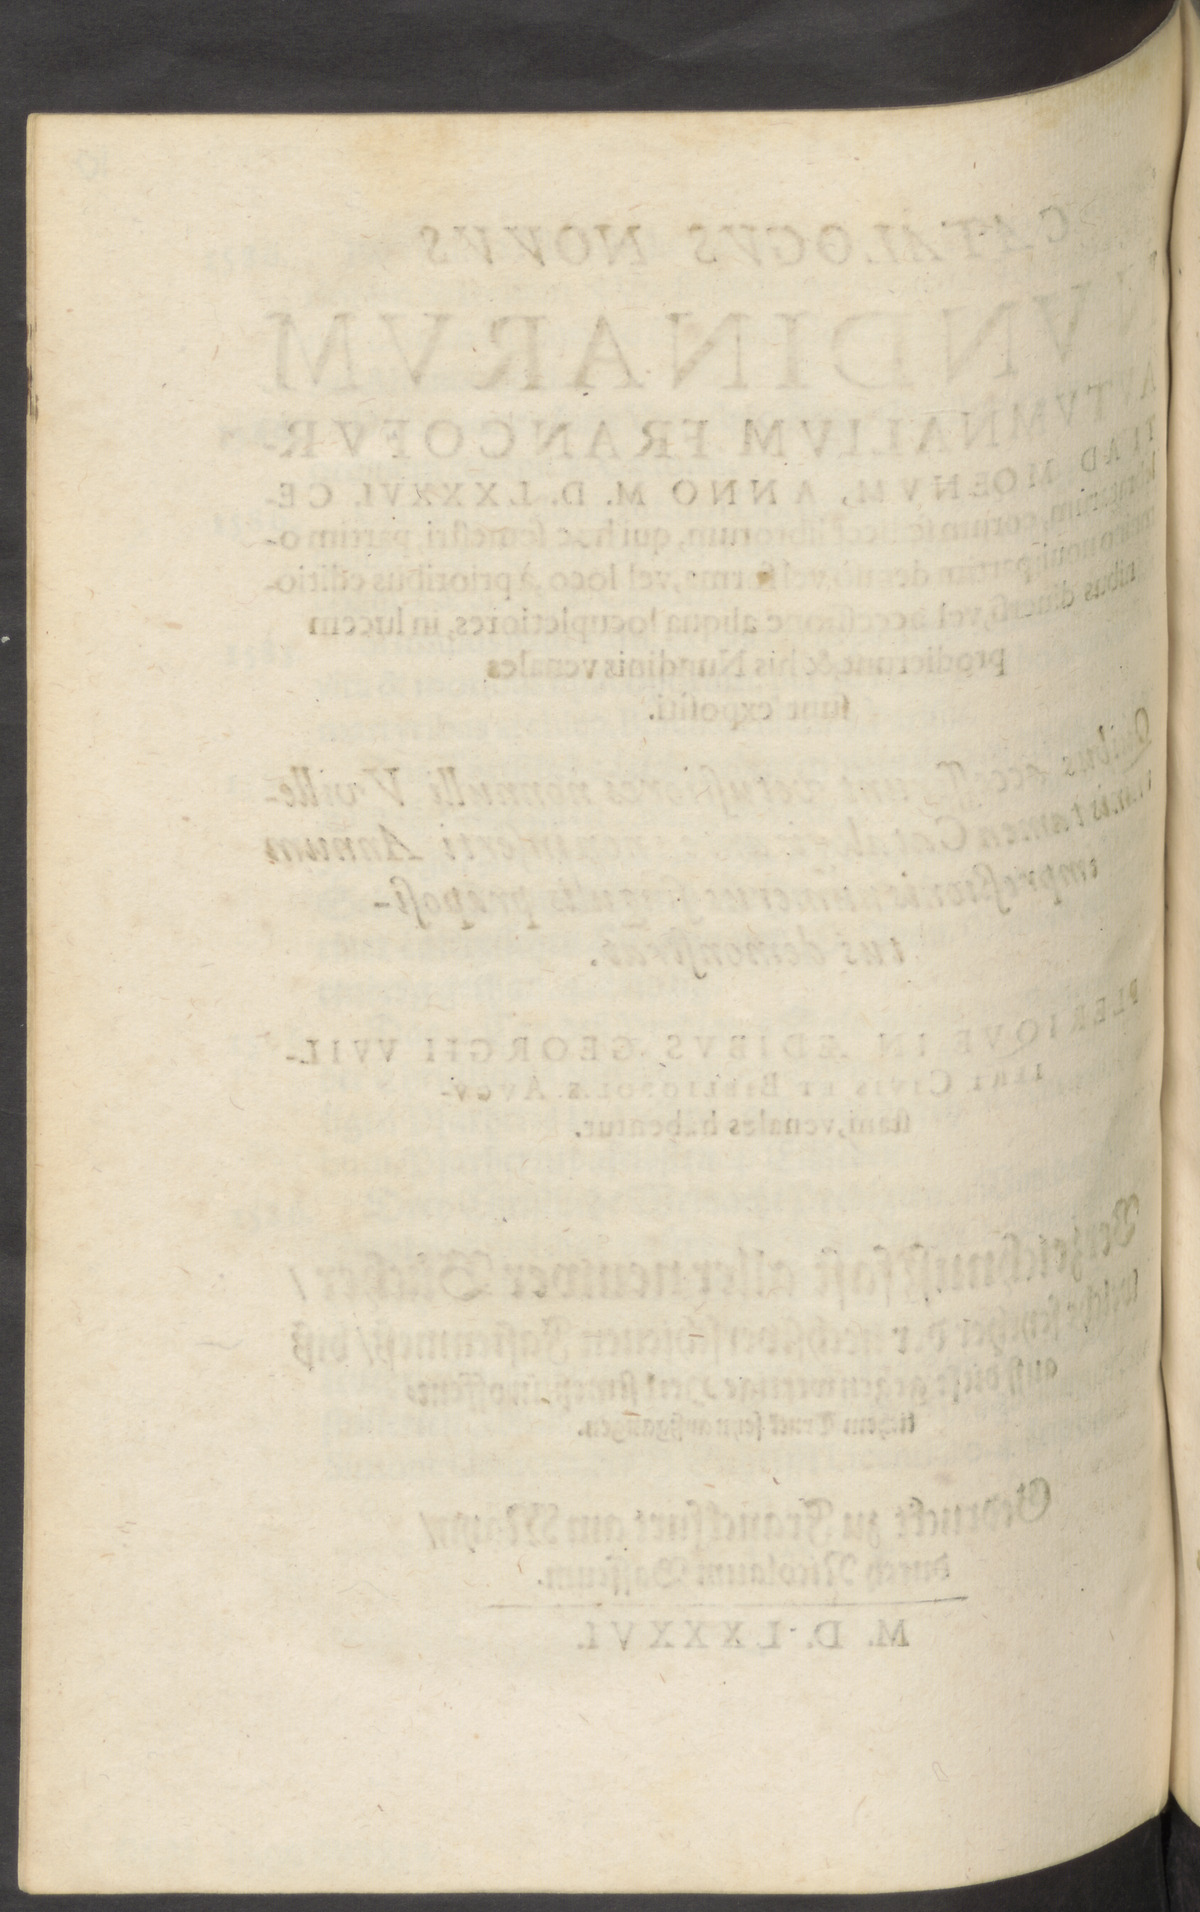 CATALOGVS NOVVS
NVNDINARVM
AVTVMNALIVM FRANCOFVR-
TI AD MOENVM, ANNO M. D. LXXXVI. CE-
librorum, qui hac semestri, partim o-
partim denuò, vel forma, vel loco, à prioribus editio-
nibus diuersi, vel accessione aliqua locupletiores, in lucem
prodierunt, & his Nundinis venales
sunt expositi.
Quibus accesserunt vetustiores nonnulli VVille-
tamen Annum
impressionis numerus singulis præposi-
tus demonstrat.
PLERIQVE IN ÆDIBVS GEORGII VVIL-
LERI CIVIS ET BIBLIOPOLÆ AVGV-
stani, venales habentur.
Verzeichnuß fast aller neuwer Bücher /
welche seyther der nechstverschienen Fastenmeß / biß
auff diese gegenwertige
Truck seyn außgangen.
Gedruckt zu Franckfurt am Mayn /
durch Nicolaum Bassæum.
M. D. LXXXVI.